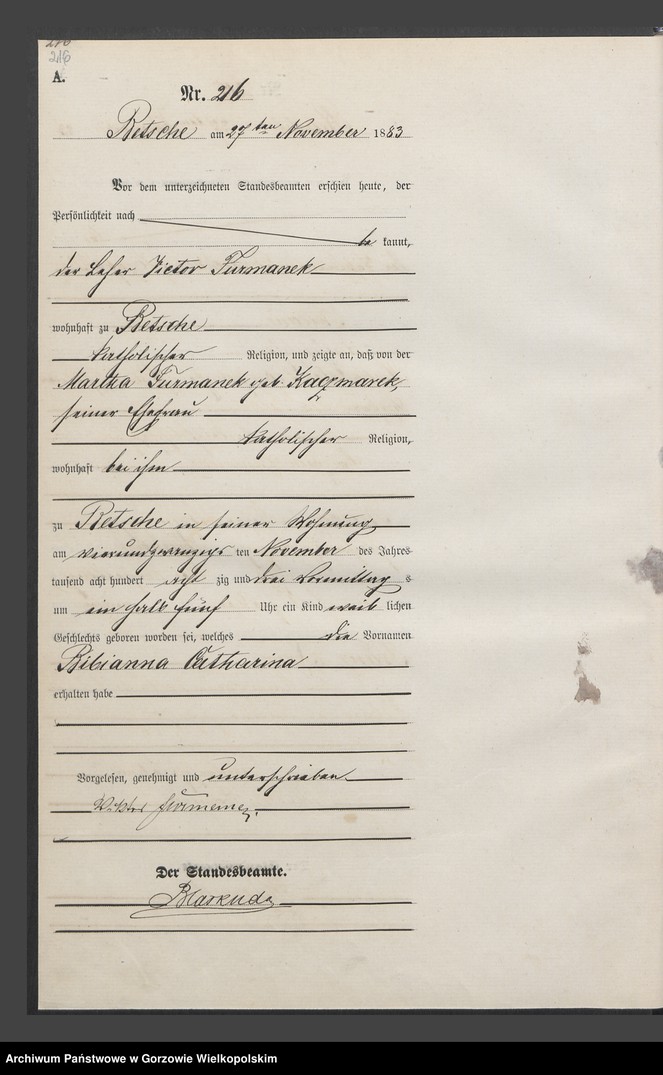 216
A.
Nr. 216
Betsche am 27ten November 1883
Vor dem unterzeichneten Standesbeamten erschien heute, der
Persönlichkeit nach
be kannt,
der Victor Furmanek
wohnhaft zu Betsche
katholischer Religion, und zeigte an, daß von der
Martha Furmanek geb. Kaczmarek,
seiner Ehefrau
katholischer Religion,
wohnhaft bei ihm
zu Betsche in seiner Wohnung
am vierundzwanzigs ten November des Jahres
tausend acht hundert acht zig und drei Vormittag s
um ein halb fünf Uhr ein Kind weib lichen
Geschlechts geboren worden sei, welches die Vornamen
Bibianna Catharina
erhalten habe
Vorgelesen, genehmigt und unterschrieben
Der Standesbeamte.